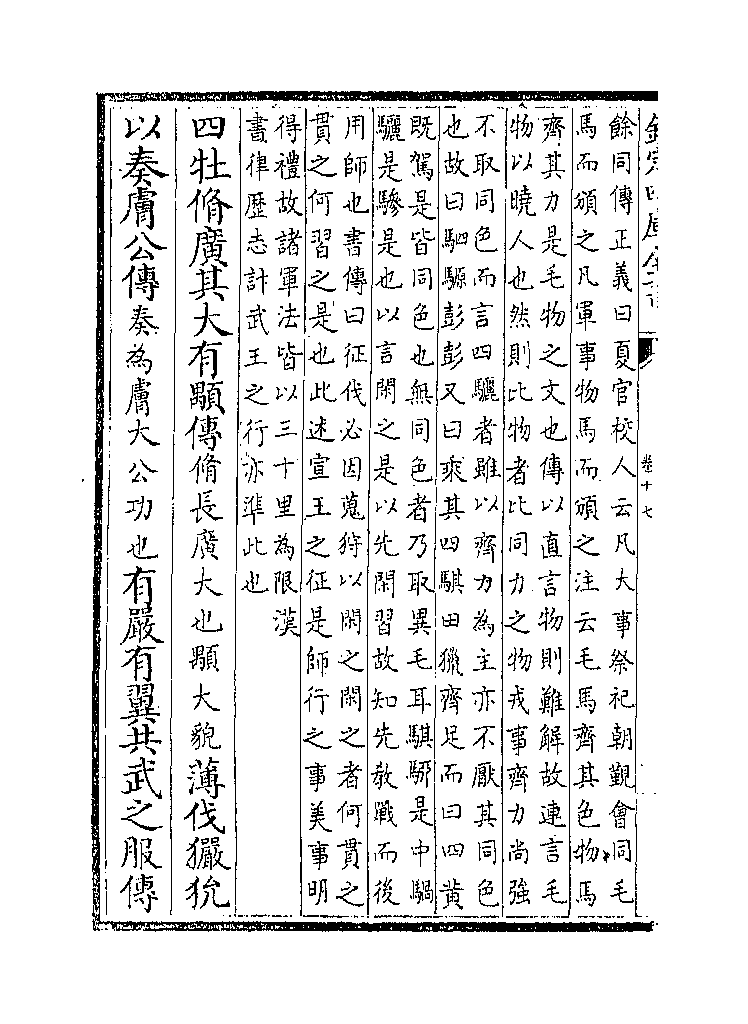 欽定四庫全書
卷十七
餘同傳正義曰夏官校人云凡大事祭祀朝覲會同毛
馬而頒之凡軍事物馬而頒之注云毛馬齊其色物馬
齊其力是毛物之文也傳以直言物則難解故連言毛
物以曉人也然則比物者比同力之物戎事齊力尚強
不取同色而言四驪者雖以齊力為主亦不厭其同色
也故曰駟騵彭彭又曰乘其四騏田獵齊足而曰四黄
既駕是皆同色也無同色者乃取異毛耳騏駵是中騧
驪是驂是也以言閑之是以先閑習故知先教戰而後
用師也書傳曰征伐必因蒐狩以閑之閑之者何貫之
貫之何習之是也此述宣王之征是師行之事美事明
得禮故諸軍法皆以三十里為限漢
書律歴志計武王之行亦準此也
四牡脩廣其大有顒傳脩長廣大也顒大貌薄伐玁狁
以奏膚公傳奏為膚大公功也有嚴有翼共武之服傳